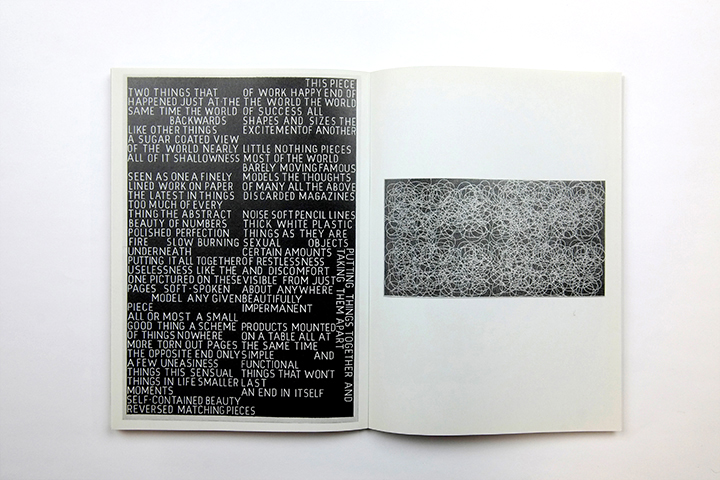 TWO THINGS THAT
HAPPENED JUST AT THE
SAME TIME THE WORLD
BACKWARDS
LIKE OTHER THINGS
A SUGAR COATED VIEW
OF THE WORLD NEARLY
ALL OF IT SHALLOWNESS
SEEN AS ONE A FINELY
LINED WORK ON PAPER
THE LATEST IN THINGS
TOO MUCH OF EVERY
THING THE ABSTRACT
BEAUTY OF NUMBERS
POLISHED PERFECTION
FIRE SLOW BURNING
UNDERNEATH
PUTTING IT ALL TOGETHER
USELESSNESS LIKE THE
ONE PICTURED ON THESE
PAGES SOFT-SPOKEN
MODEL ANY GIVEN
PIECE
ALL OR MOST A SMALL
GOOD THING A SCHEME
OF THINGS NOWHERE
MORE TORN OUT PAGES
THE OPPOSITE END ONLY
A FEW UNEASINESS
THINGS THIS SENSUAL
THINGS IN LIFE SMALLER
MOMENTS
SELF-CONTAINED BEAUTY
REVERSED MATCHING PIECES
THIS PIECE
OF WORK HAPPY END OF
THE WORLD THE WORLD
OF SUCCESS ALL
SHAPES AND SIZES THE
EXCITEMENT OF ANOTHER
LITTLE NOTHING PIECES
MOST OF THE WORLD
BARELY MOVING FAMOUS
MODELS THE THOUGHTS
OF MANY ALL THE ABOVE
DISCARDED MAGAZINES
NOISE SOFT PENCIL LINES
THICK WHITE PLASTIC
THINGS AS THEY ARE
SEXUAL OBJECTS
CERTAIN AMOUNTS
OF RESTLESSNESS
AND DISCOMFORT
VISIBLE FROM JUST
ABOUT ANYWHERE
BEAUTIFULLY
IMPERMANENT
PRODUCTS MOUNTED
ON A TABLE ALL AT
THE SAME TIME
SIMPLE AND
FUNCTIONAL
THINGS THAT WON'T
LAST
AN END IN ITSELF
PUTTING THINGS TOGETHER AND
TAKING THEM APART